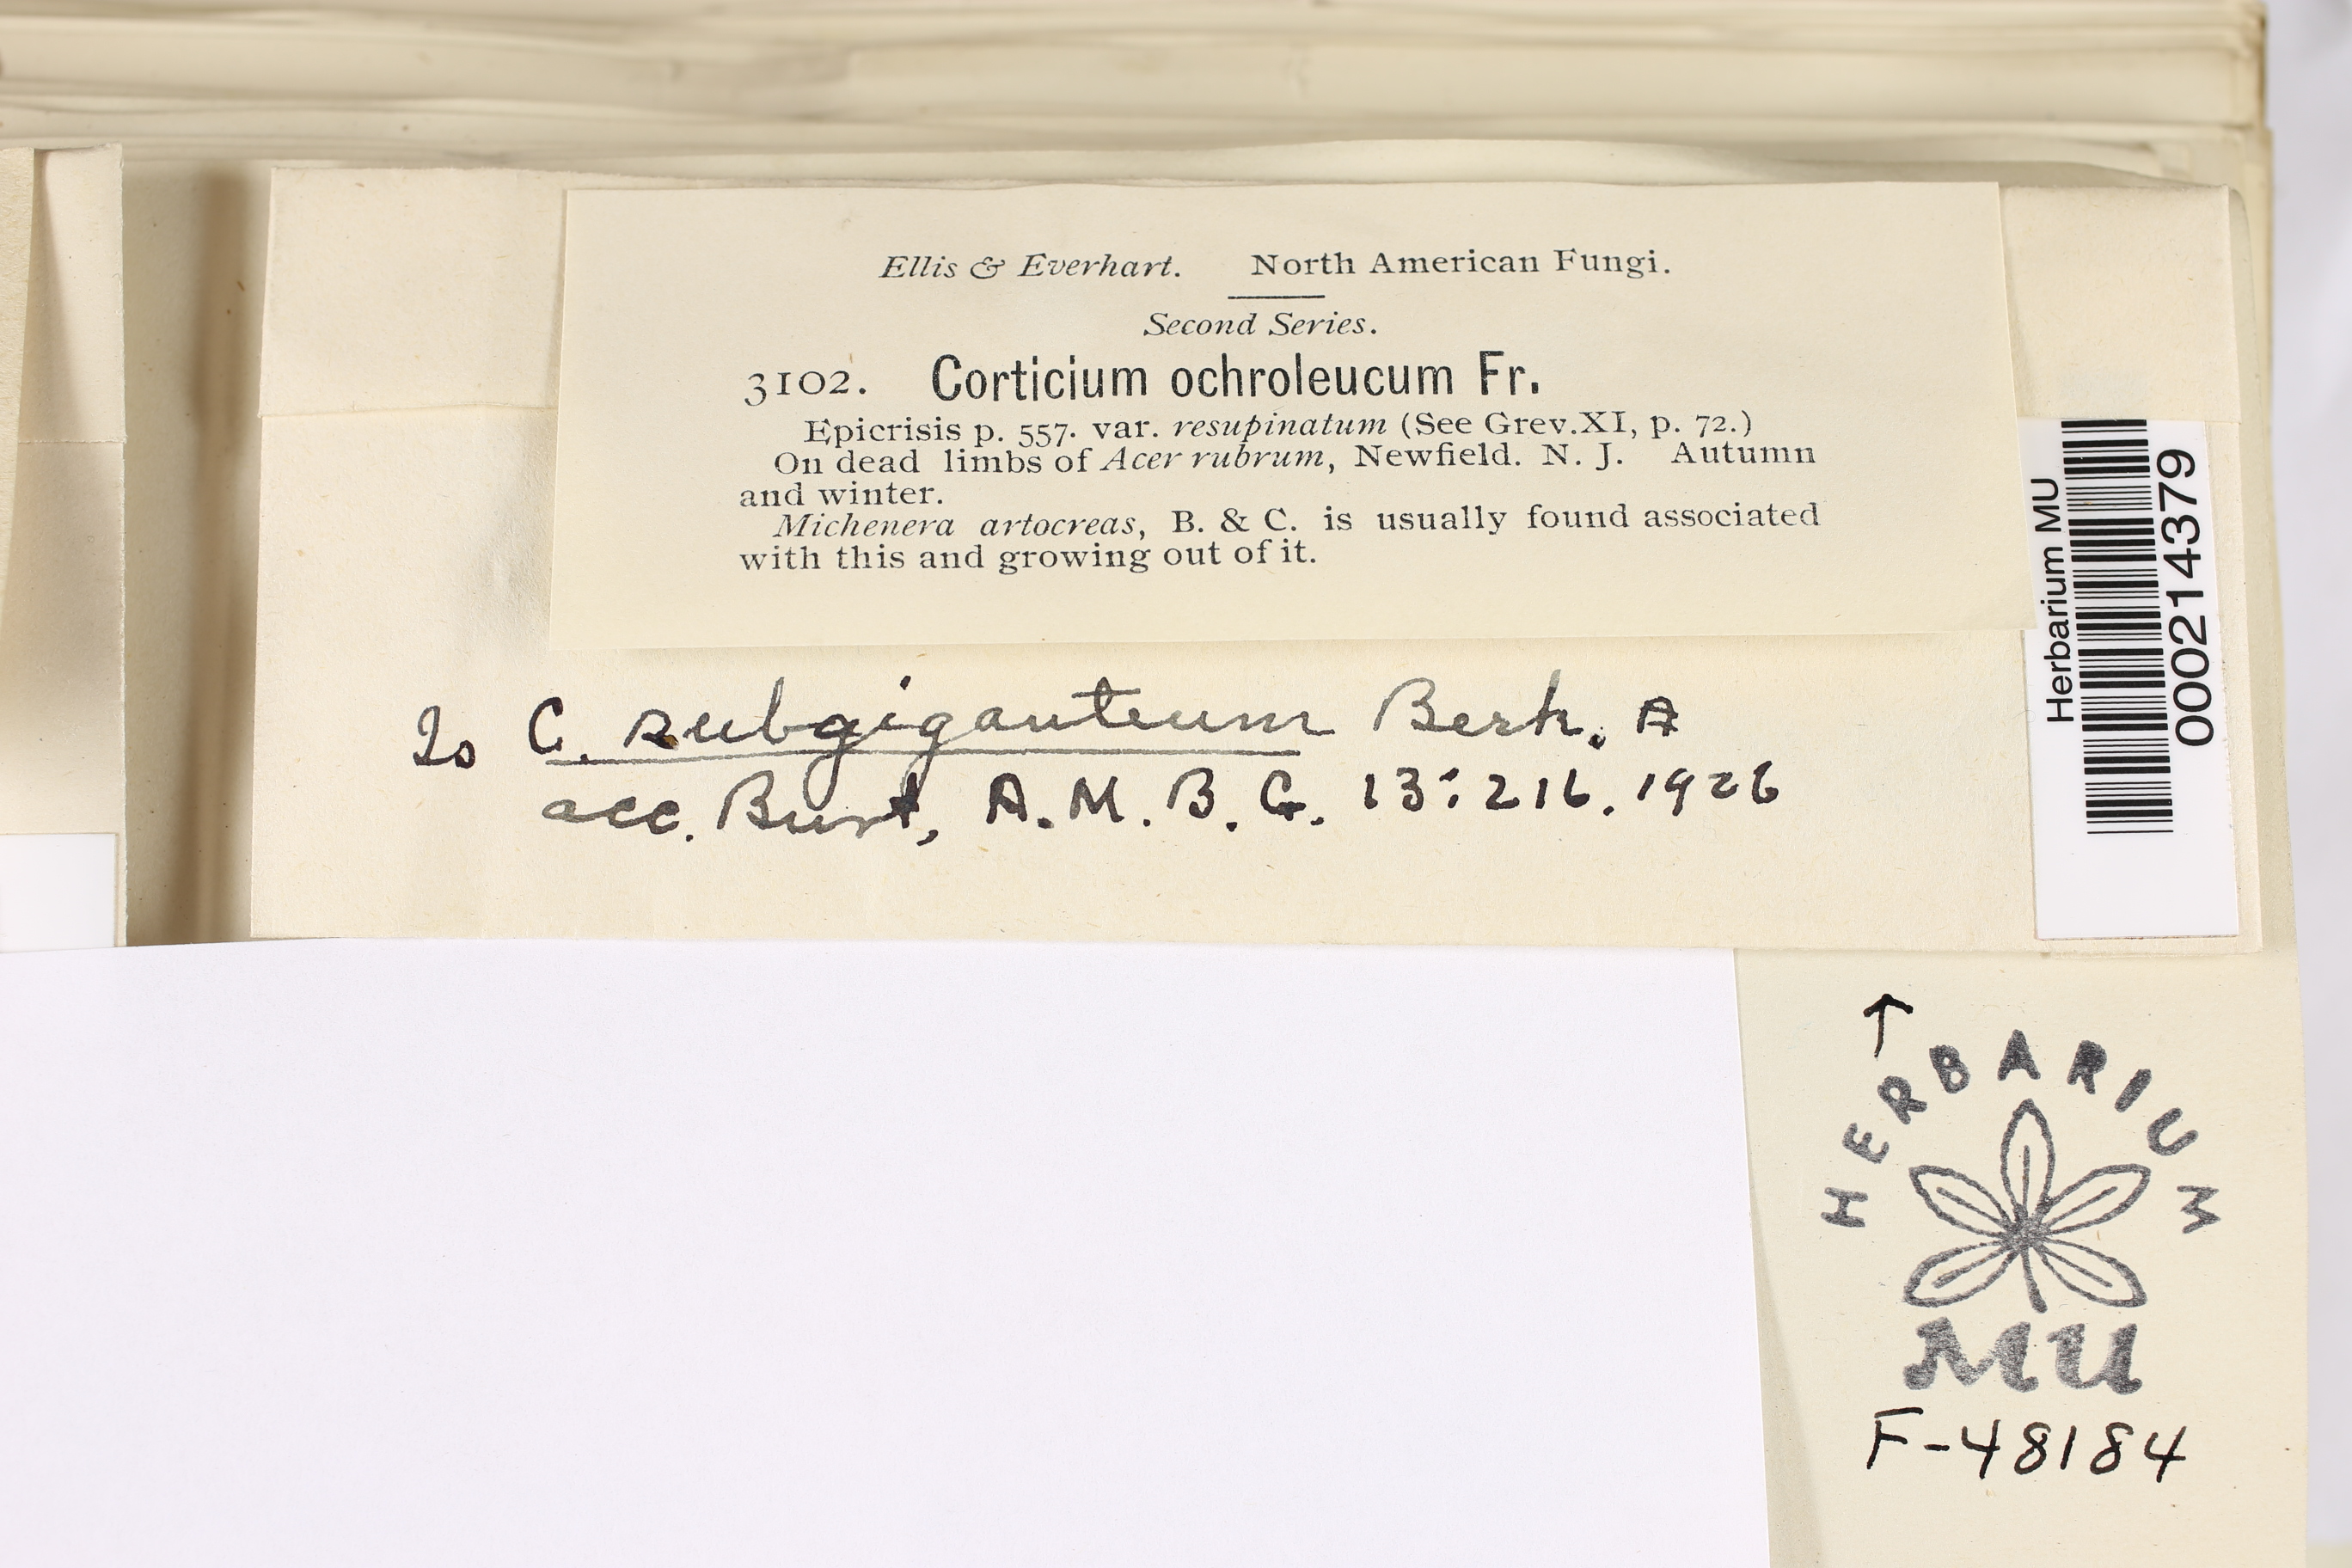 Ellis & Everhart. North American Fungi.
Second Series.
3102. Corticium ochroleucum Fr.
Epicrisis p. 557. var. resupinatum (See Grev.XI, p. 72.)
On dead limbs of Acer rubrum, Newfield. N. J. Autumn
and winter.
Michenera artocreas, B. & C. is usually found associated
with this and growing out of it.
Is C. subgiganteum Berk. A
acc. Burt, A.M.B.G. 13:216. 1926
Herbarium MU
000214379
↑
HERBARIUM
MU
F-48184